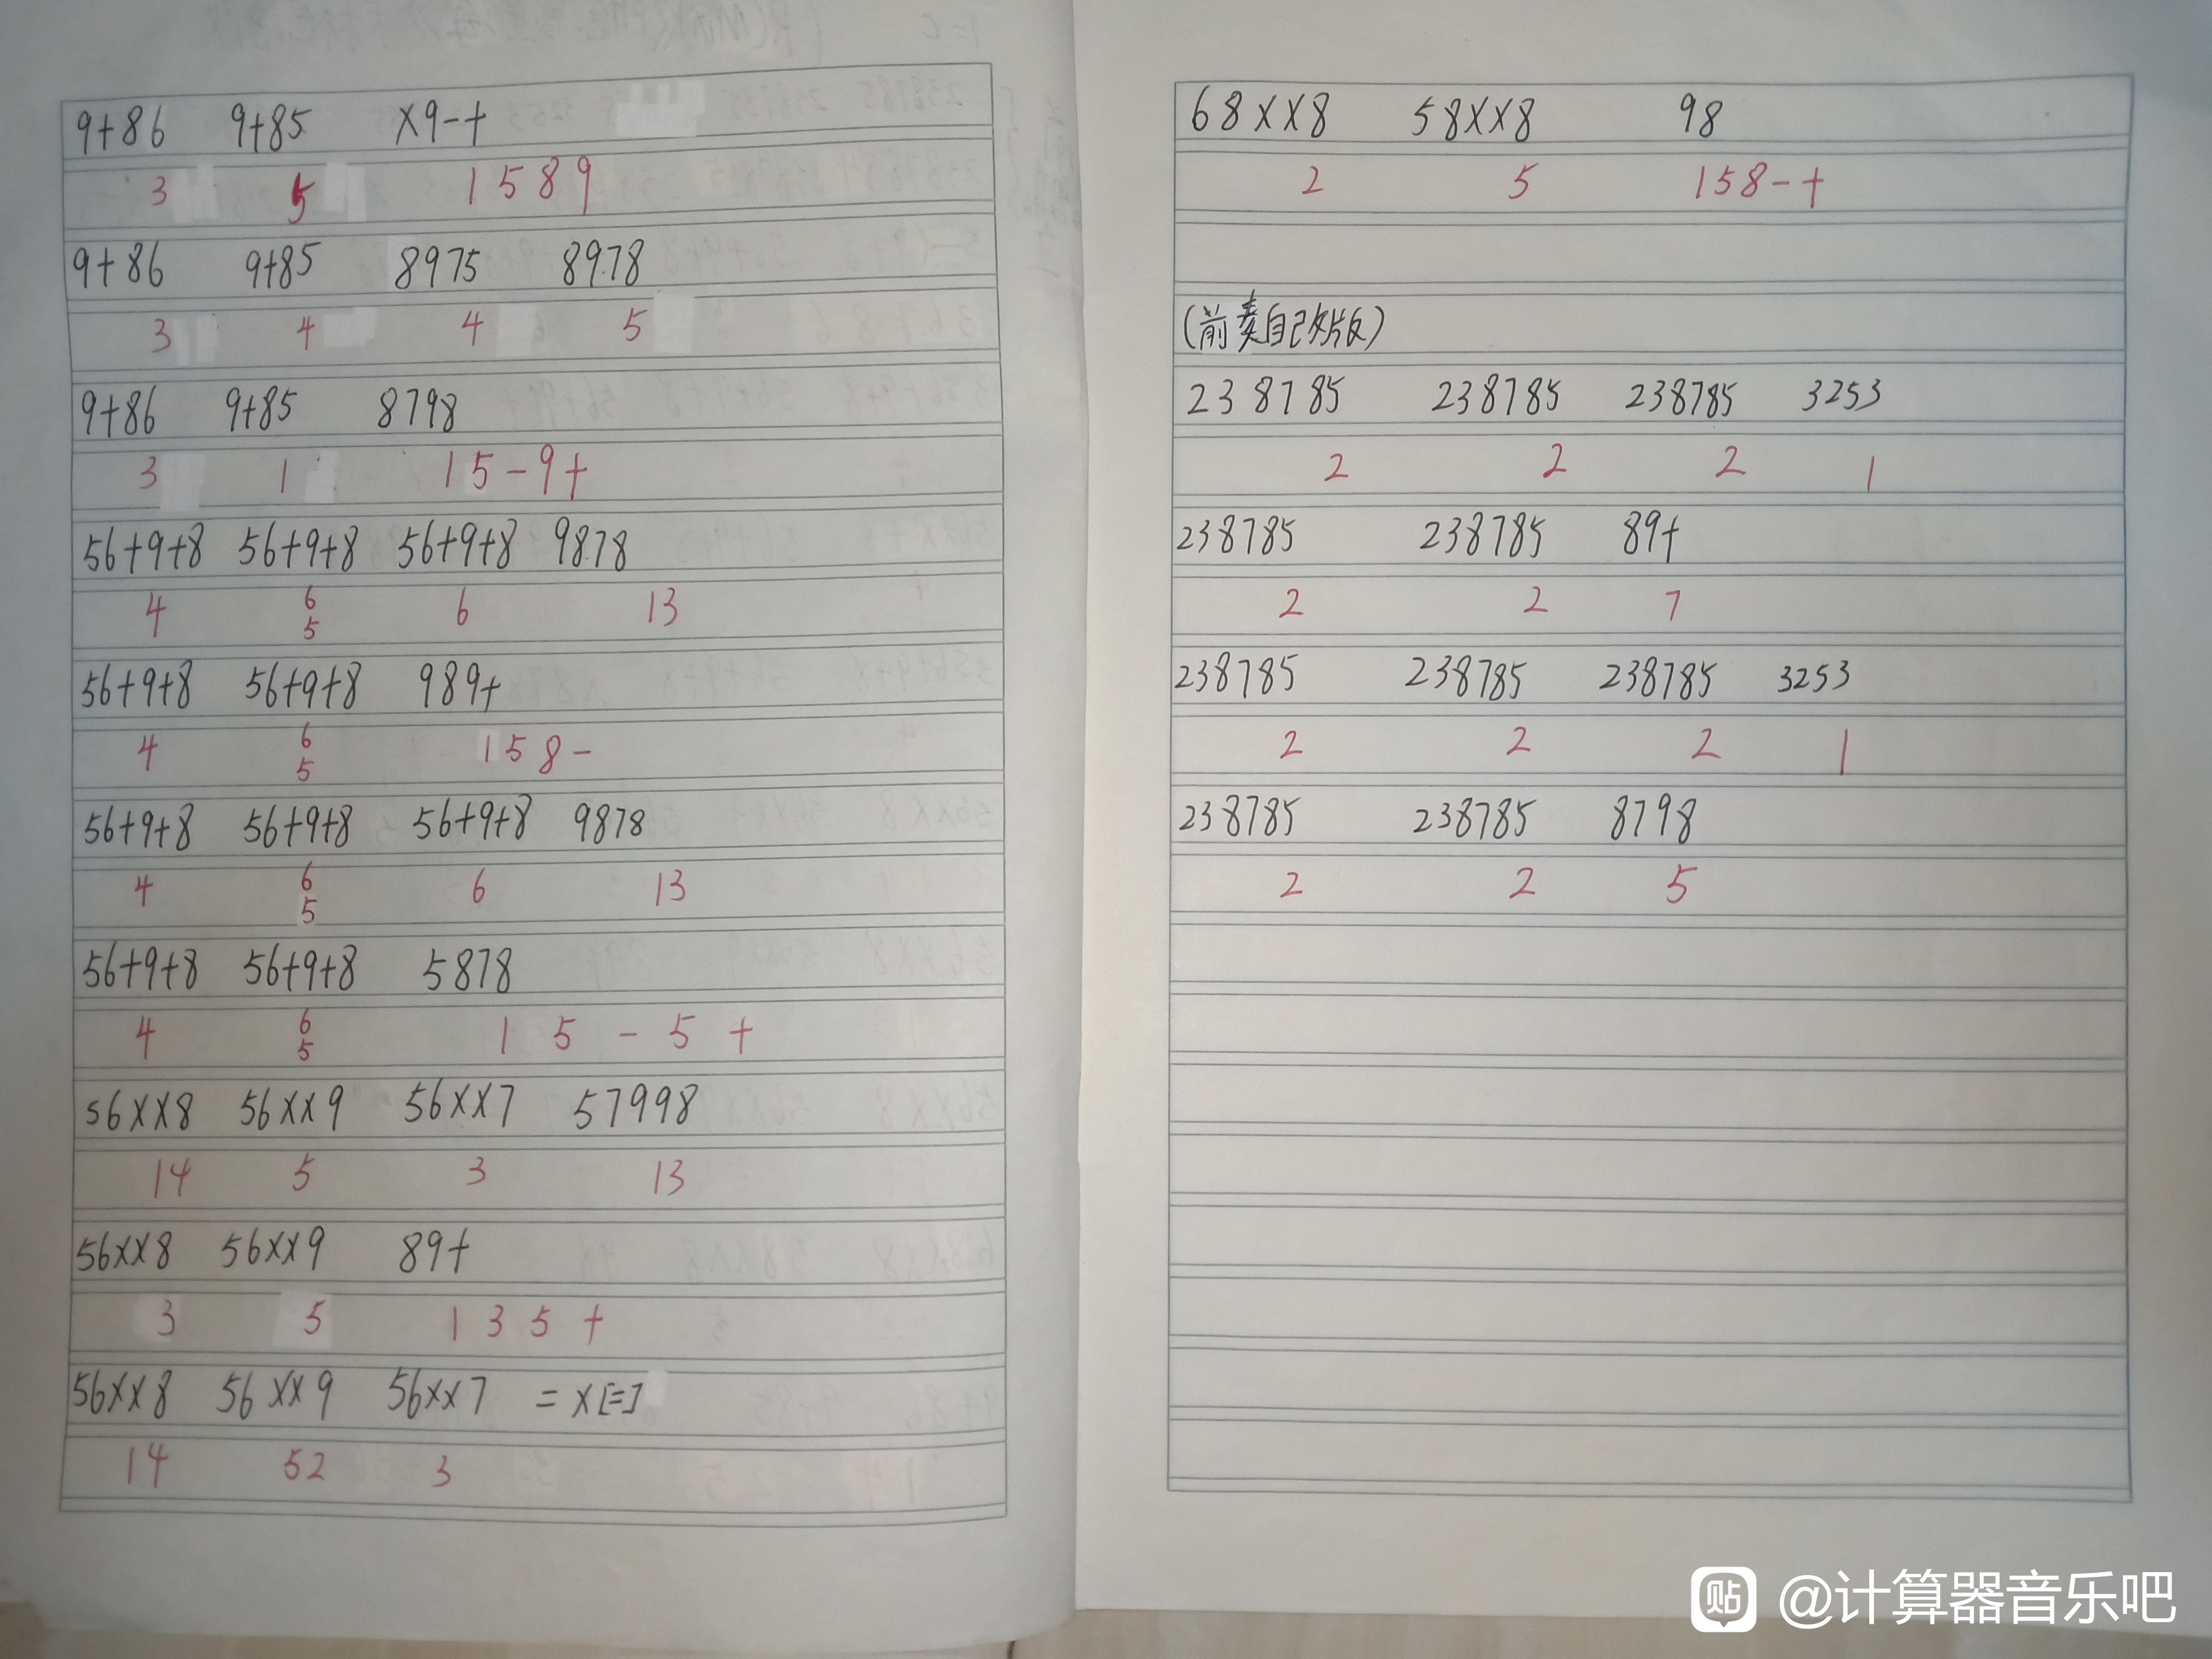 9+86 9+85 ×9-+
3 5 1589
9+86 9+85 8975 8978
3 4 4 5
9+86 9+85 8798
3 1 15-9+
56+9+8 56+9+8 56+9+8 9878
4 6 6 13
5
56+9+8 56+9+8 989+
4 6 158-
5
56+9+8 56+9+8 56+9+8 9878
4 6 6 13
5
56+9+8 56+9+8 5878
4 6 15-5+
5
56××8 56××9 56××7 57998
14 5 3 13
56××8 56××9 89+
3 5 135+
56××8 56××9 56××7 =×[=]
14 52 3
68××8 58××8 98
2 5 158-+
(前奏自己版)
238785 238785 238785 3253
2 2 2 1
238785 238785 89+
2 2 7
238785 238785 238785 3253
2 2 2 1
238785 238785 8798
2 2 5
贴 @计算器音乐吧